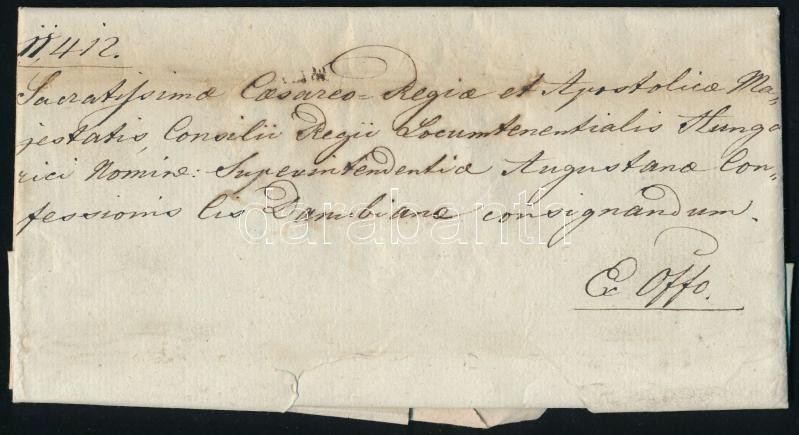 11,412.
Sacratissimæ Cæsareo=Regiæ et Apostolicæ Ma,,
jestatis, Consilii Regii Locumtenentialis Hunga
rici Nomine: Superintendentiæ Augustanæ Con,,
fessionis Cis Danubianæ consignandum.
Ex Offo.
darabanth